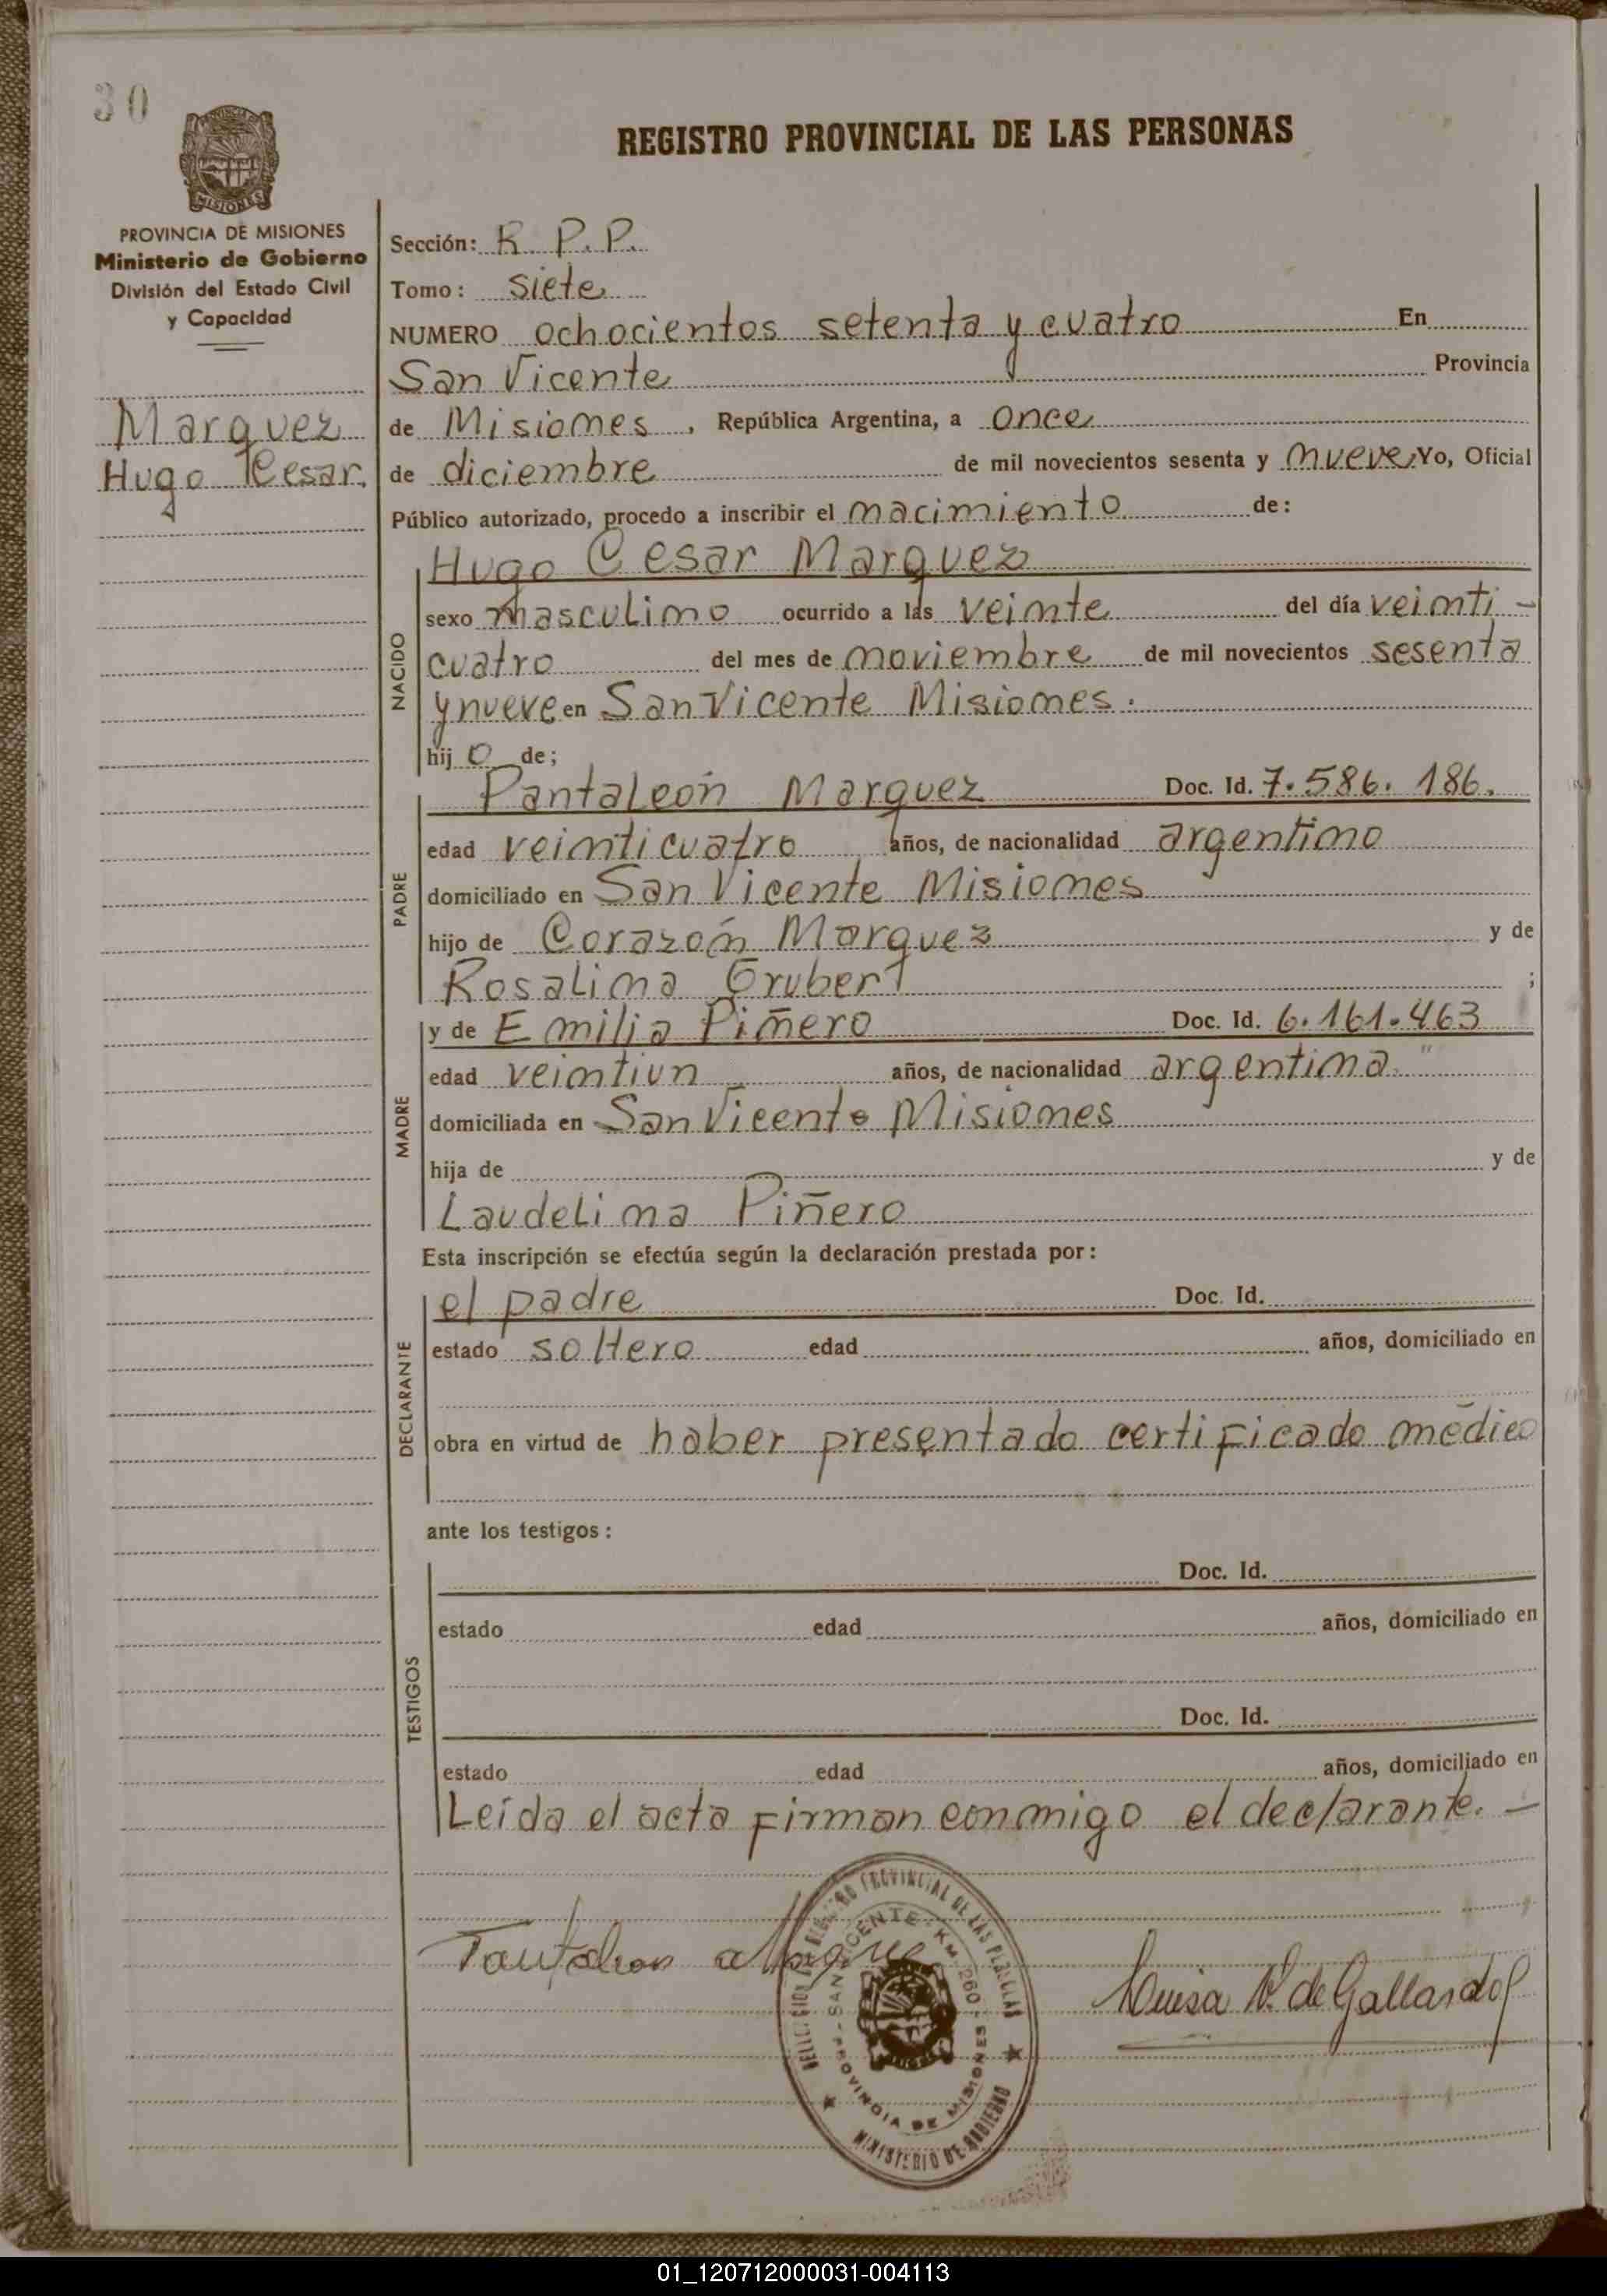 30
REGISTRO PROVINCIAL DE LAS PERSONAS
MISIONES
PROVINCIA DE MISIONES
Ministerio de Gobierno
División del Estado Civil
y Capacidad
Marquez
Hugo Cesar.
Sección: R P.P.
Tomo: siete
NUMERO ochocientos setenta y cuatro En
San Vicente Provincia
de Misiones, República Argentina, a once
de diciembre de mil novecientos sesenta y nueve Yo, Oficial
Público autorizado, procedo a inscribir el nacimiento de:
NACIDO
Hugo Cesar Marquez
sexo masculino ocurrido a las veinte del día veinti-
cuatro del mes de noviembre de mil novecientos sesenta
y nueve en San Vicente Misiones.
hijo de;
PADRE
Pantaleón Marquez Doc. Id. 7.586.186.
edad veinticuatro años, de nacionalidad argentino
domiciliado en San Vicente Misiones
hijo de Corazón Marquez y de
Rosalina Grubert ;
MADRE
y de Emilia Piñero Doc. Id. 6.161.463
edad veintiun años, de nacionalidad argentina "
domiciliada en San Vicente Misiones
hija de y de
Laudelina Piñero
Esta inscripción se efectúa según la declaración prestada por:
DECLARANTE
el padre Doc. Id.
estado soltero edad años, domiciliado en
obra en virtud de haber presentado certificado médico
ante los testigos:
TESTIGOS
Doc. Id.
estado edad años, domiciliado en
Doc. Id.
estado edad años, domiciliado en
Leída el acta firman conmigo el declarante. -
REGISTRO PROVINCIAL DE LAS PERSONAS
SAN VICENTE - KM 260 -
PROVINCIA DE MISIONES
MINISTERIO DE GOBIERNO
Luisa V. de Gallardo
01_120712000031-004113